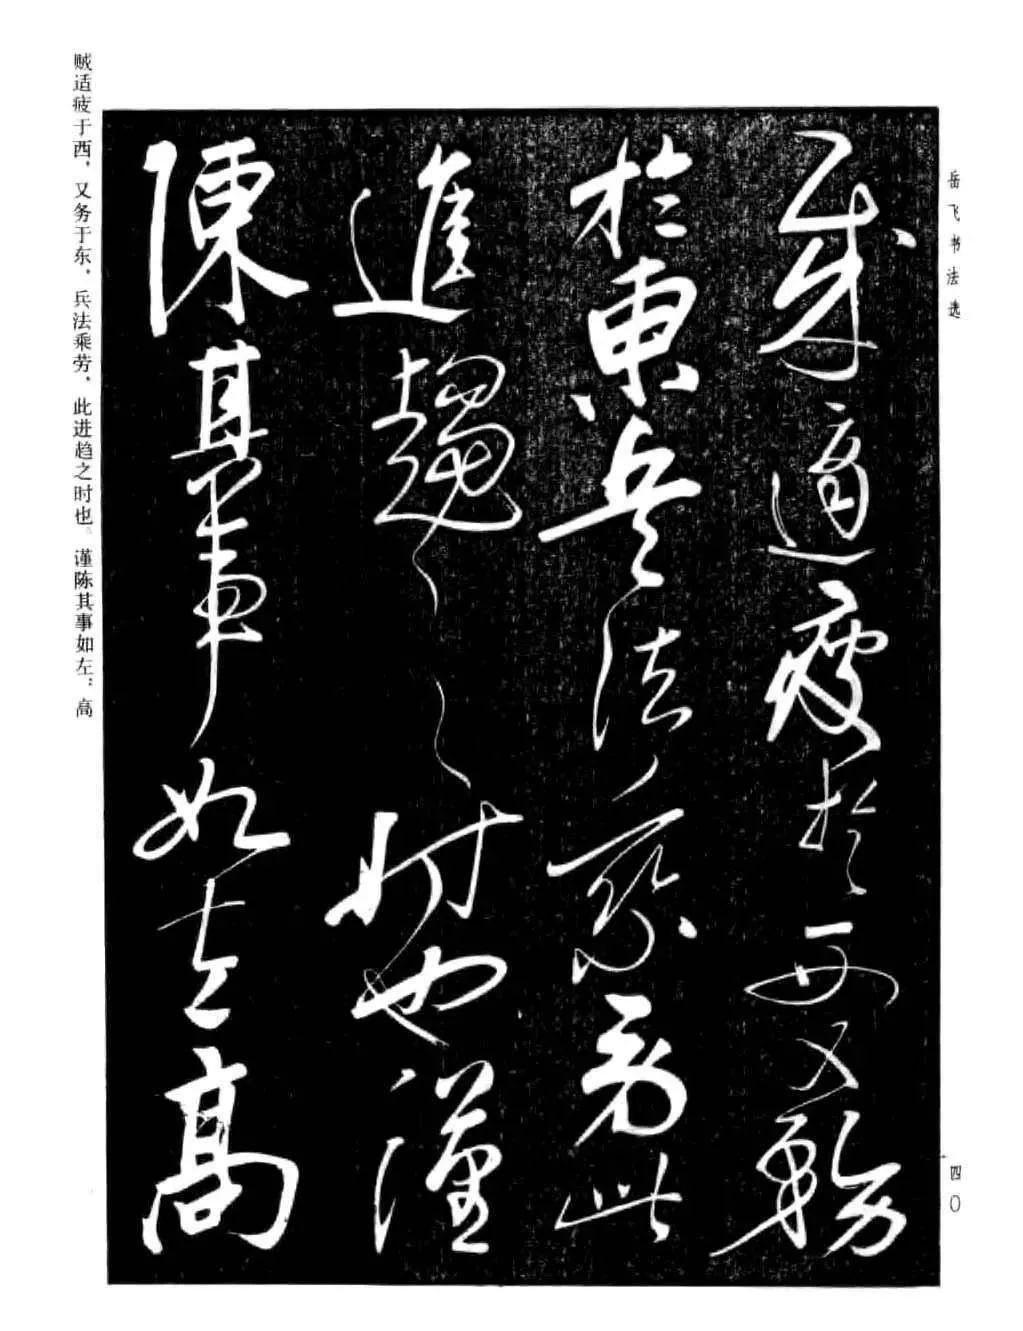 岳飞书法选
贼适疲于西，又务于东，兵法乘劳，此进趋之时也。谨陈其事如左：高
賊適疲於西又務
於東兵法乘勞此
進趨之時也謹
陳其事如左高
四〇